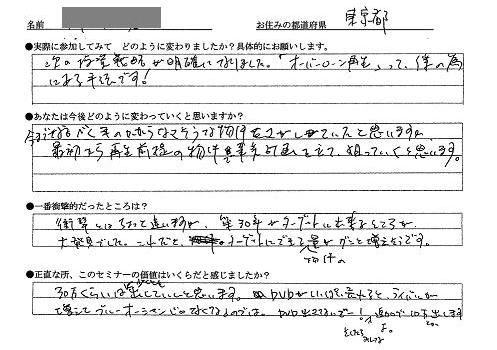 名前
お住みの都道府県 東京都
●実際に参加してみて どのように変わりましたか？具体的にお願いします。
次の投資戦略が明確になりました。「オーバーローン再生」って、僕の為
にある手法です！
●あなたは今後どのように変わっていくと思いますか？
今まではなるべく手のかからなそうな物件をさがしていたと思いますが、
最初から再生前提の物件で事業計画を立て、狙っていくと思います。
●一番衝撃的だったところは？
衝撃とはちょっと違いますが、築30年がターゲットに出来るところが
大発見でした。これだと、ターゲットにできる量がグンと増えそうです。
物件の
●正直な所、このセミナーの価値はいくらだと感じましたか？
30万くらいは出していいと思います。DVDがいっぱい売れると、ライバルが
増えてブルーオーシャンじゃなくなるのでは。DVD出さないで！